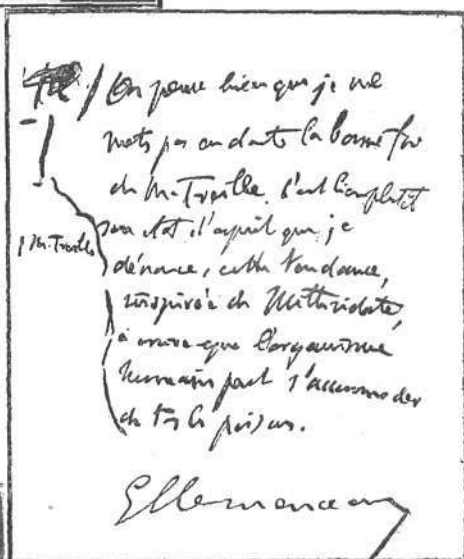 On pense bien que je ne
mets pas en doute la bonne foi
de M. Treille. C'est bien plutôt
son état d'esprit que je
M. Treille
dénonce, cette tendance,
inspirée de Mithridate,
à croire que l'organisme
humain peut s'accommoder
de ts les poisons.
G Clemenceau